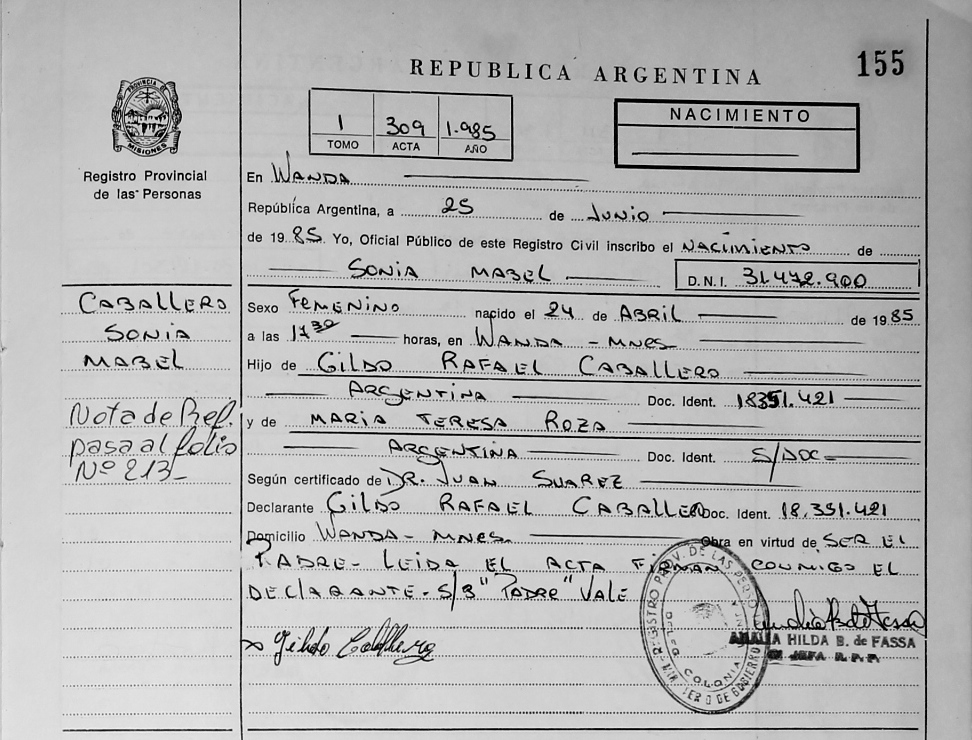 155
REPUBLICA ARGENTINA
PROVINCIA DE MISIONES
Registro Provincial
de las Personas
1 309 1.985
TOMO ACTA AÑO
NACIMIENTO
En WANDA
República Argentina, a 25 de JUNIO
de 1985. Yo, Oficial Público de este Registro Civil inscribo el NACIMIENTO de
SONIA MABEL D.N.I. 31.472.900
CABALLERO
SONIA
MABEL
Nota de Ref.
pasa al folio
Nº 213-
Sexo FEMENINO nacido el 24 de ABRIL de 1985
a las 17 30 horas, en WANDA - MNES-
Hijo de GILDO RAFAEL CABALLERO
ARGENTINA Doc. Ident. 18351.421
y de MARIA TERESA ROZA
ARGENTINA Doc. Ident. S/DOC-
Según certificado de DR. JUAN SUAREZ
Declarante GILDO RAFAEL CABALLERO Doc. Ident. 18.351.421
Domicilio WANDA - MNES. Obra en virtud de SER EL
PADRE- LEIDA EL ACTA FIRMAN CONMIGO EL
DECLARANTE- S/B "PADRE" VALE
x Gildo Caballero
REGISTRO PROV. DE LAS PERSONAS
COLONIA WANDA
AMALIA HILDA B. de FASSA